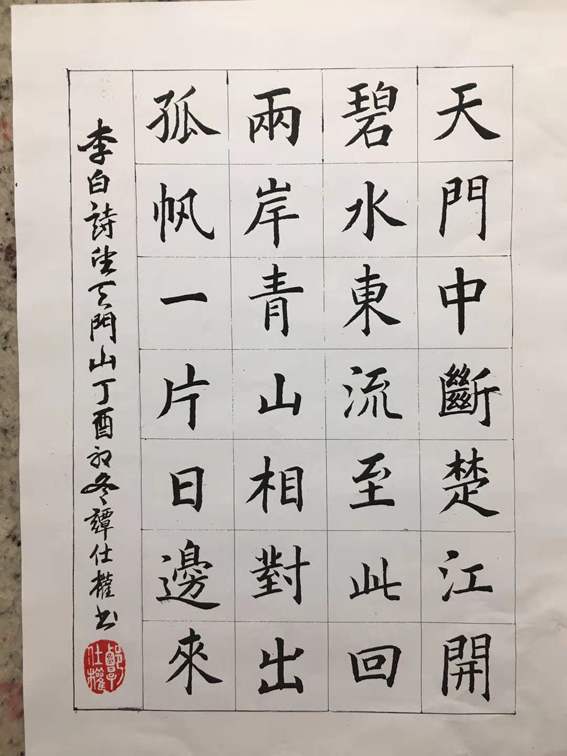 天門中斷楚江開
碧水東流至此回
兩岸青山相對出
孤帆一片日邊來
李白詩望天門山丁酉初冬譚仕權書
譚仕權